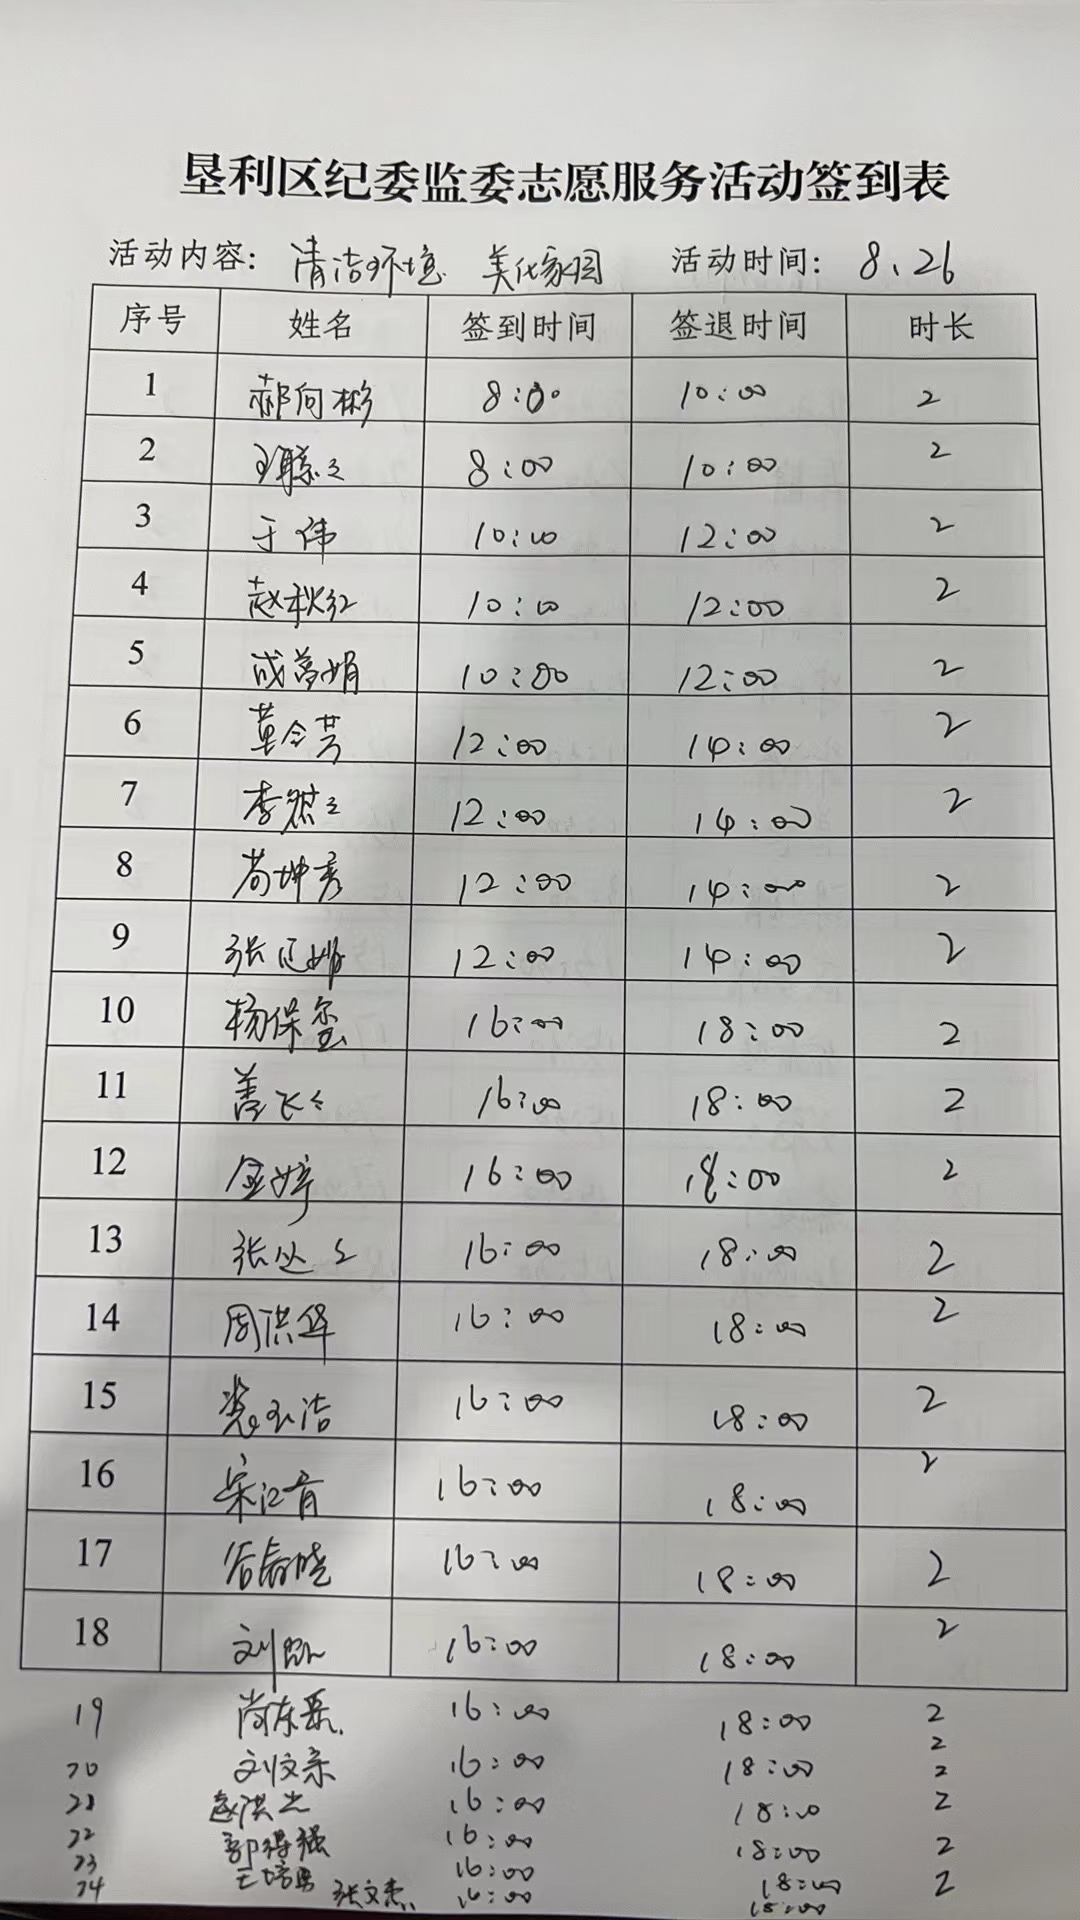 垦利区纪委监委志愿服务活动签到表
活动内容: 清洁环境 美化家园 活动时间: 8、26
序号 姓名 签到时间 签退时间 时长
1 郝向彬 8:00 10:00 2
2 8:00 10:00 2
3 于伟 10:00 12:00 2
4 赵秋红 10:00 12:00 2
5 成梦娟 10:00 12:00 2
6 董令芳 12:00 14:00 2
7 李 12:00 14:00 2
8 苟坤秀 12:00 14:00 2
9 张 12:00 14:00 2
10 杨保玺 16:00 18:00 2
11 16:00 18:00 2
12 金婷 16:00 18:00 2
13 张 16:00 18:00 2
14 周洪华 16:00 18:00 2
15 玉洁 16:00 18:00 2
16 宋江育 16:00 18:00 2
17 谷春晓 16:00 18:00 2
18 刘凯 16:00 18:00 2
19 尚东磊 16:00 18:00 2
2
20 刘文亲 16:00 18:00 2
21 赵洪杰 16:00 18:00 2
22 郭得强 16:00 18:00 2
23 王培 16:00 18:00 2
24 张文杰 16:00 18:00